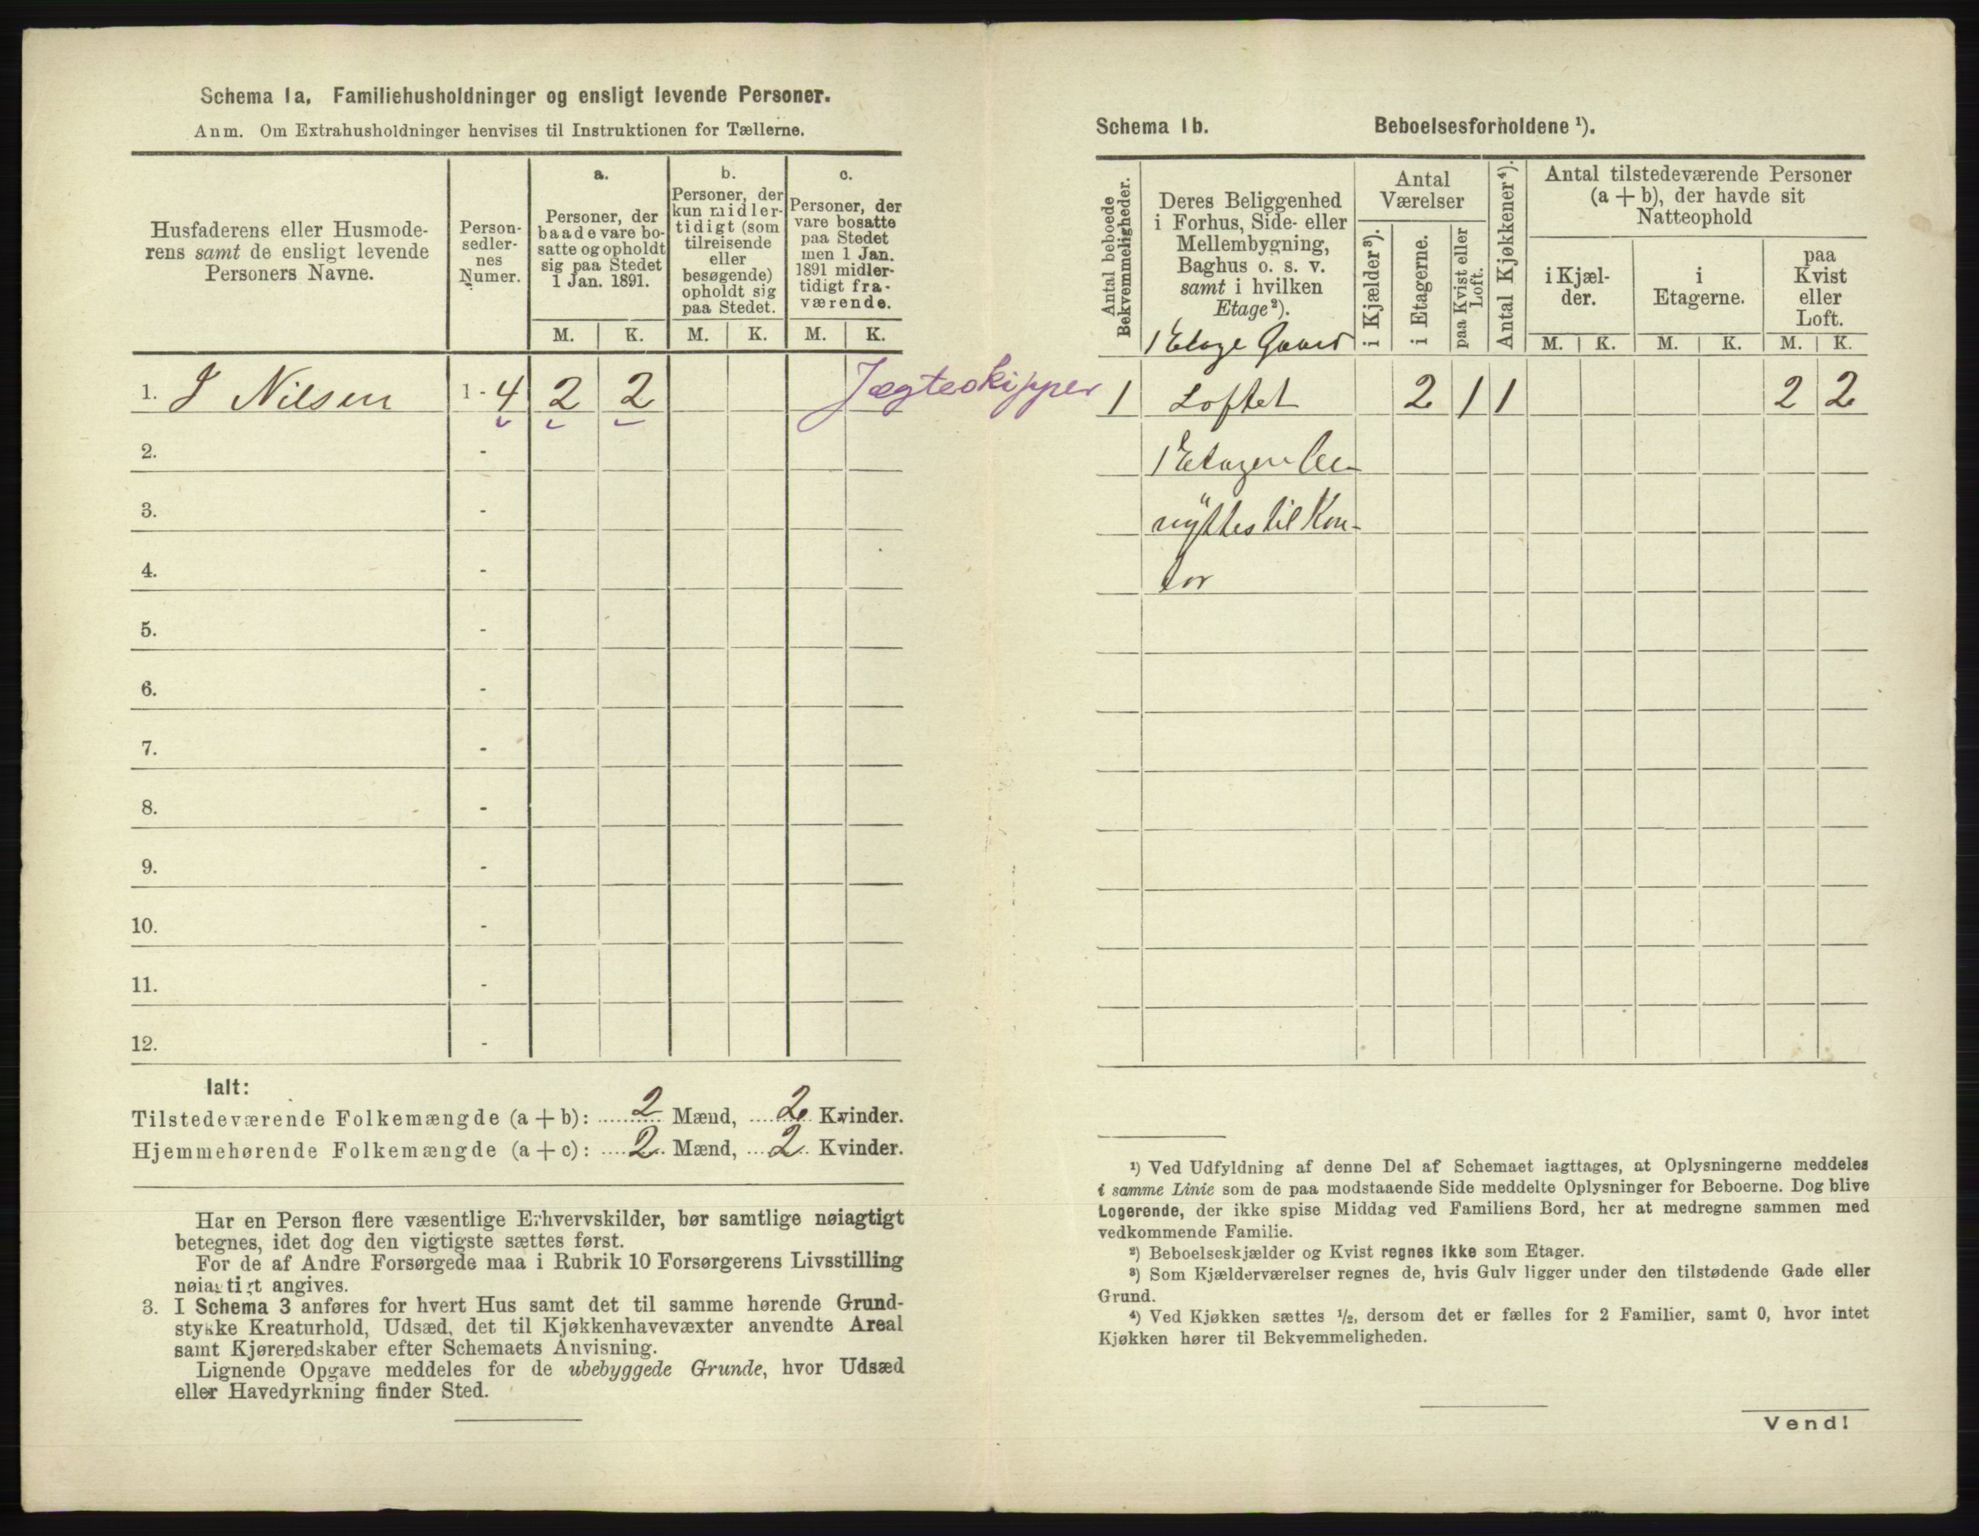 Schema 1a. Familiehusholdninger og ensligt levende Personer.
Anm. Om Extrahusholdninger henvises til Instruktionen for Tællerne.
Husfaderens eller Husmode-
rens samt de ensligt levende
Personers Navne.
Person-
sedler-
nes
Numer.
a.
Personer, der
baade vare bo-
satte og opholdt
sig paa Stedet
1 Jan. 1891.
M. K.
b.
Personer, der
kun midler-
tidigt (som
tilreisende
eller
besøgende)
opholdt sig
paa Stedet.
M. K.
c.
Personer, der
vare bosatte
paa Stedet
men 1 Jan.
1891 midler-
tidigt fra-
værende.
M. K.
1. J Nilsen 1 - 4 2 2 Jægteskipper
2. -
3. -
4. -
5. -
6. -
7. -
8. -
9. -
10. -
11. -
12. -
Ialt:
Tilstedeværende Folkemængde (a + b): 2 Mænd, 2 Kvinder.
Hjemmehørende Folkemængde (a + c): 2 Mænd, 2 Kvinder.
Har en Person flere væsentlige Erhvervskilder, bør samtlige nøiagtigt
betegnes, idet dog den vigtigste sættes først.
For de af Andre Forsørgede maa i Rubrik 10 Forsørgerens Livsstilling
nøiagtigt angives.
3. I Schema 3 anføres for hvert Hus samt det til samme hørende Grund-
stykke Kreaturhold, Udsæd, det til Kjøkkenhavevæxter anvendte Areal
samt Kjøreredskaber efter Schemaets Anvisning.
Lignende Opgave meddeles for de ubebyggede Grunde, hvor Udsæd
eller Havedyrkning finder Sted.
Schema 1b. Beboelsesforholdene ¹).
Antal beboede
Bekvemmeligheder.
Deres Beliggenhed
i Forhus, Side- eller
Mellembygning,
Baghus o. s. v.
samt i hvilken
Etage²).
1 Etage Gaard
Antal
Værelser
i Kjælder³).
i Etagerne.
paa Kvist eller
Loft.
Antal Kjøkkener⁴).
Antal tilstedeværende Personer
(a + b), der havde sit
Natteophold
i Kjæl-
der.
M. K.
i
Etagerne.
M. K.
paa
Kvist
eller
Loft.
M. K.
1 Loftet 2 1 1 2 2
1 Etagen be-
nyttes til Kon-
tor
¹) Ved Udfyldning af denne Del af Schemaet iagttages, at Oplysningerne meddeles
i samme Linie som de paa modstaaende Side meddelte Oplysninger for Beboerne. Dog blive
Logerende, der ikke spise Middag ved Familiens Bord, her at medregne sammen med
vedkommende Familie.
²) Beboelseskjælder og Kvist regnes ikke som Etager.
³) Som Kjælderværelser regnes de, hvis Gulv ligger under den tilstødende Gade eller
Grund.
⁴) Ved Kjøkken sættes ½, dersom det er fælles for 2 Familier, samt 0, hvor intet
Kjøkken hører til Bekvemmeligheden.
Vend!